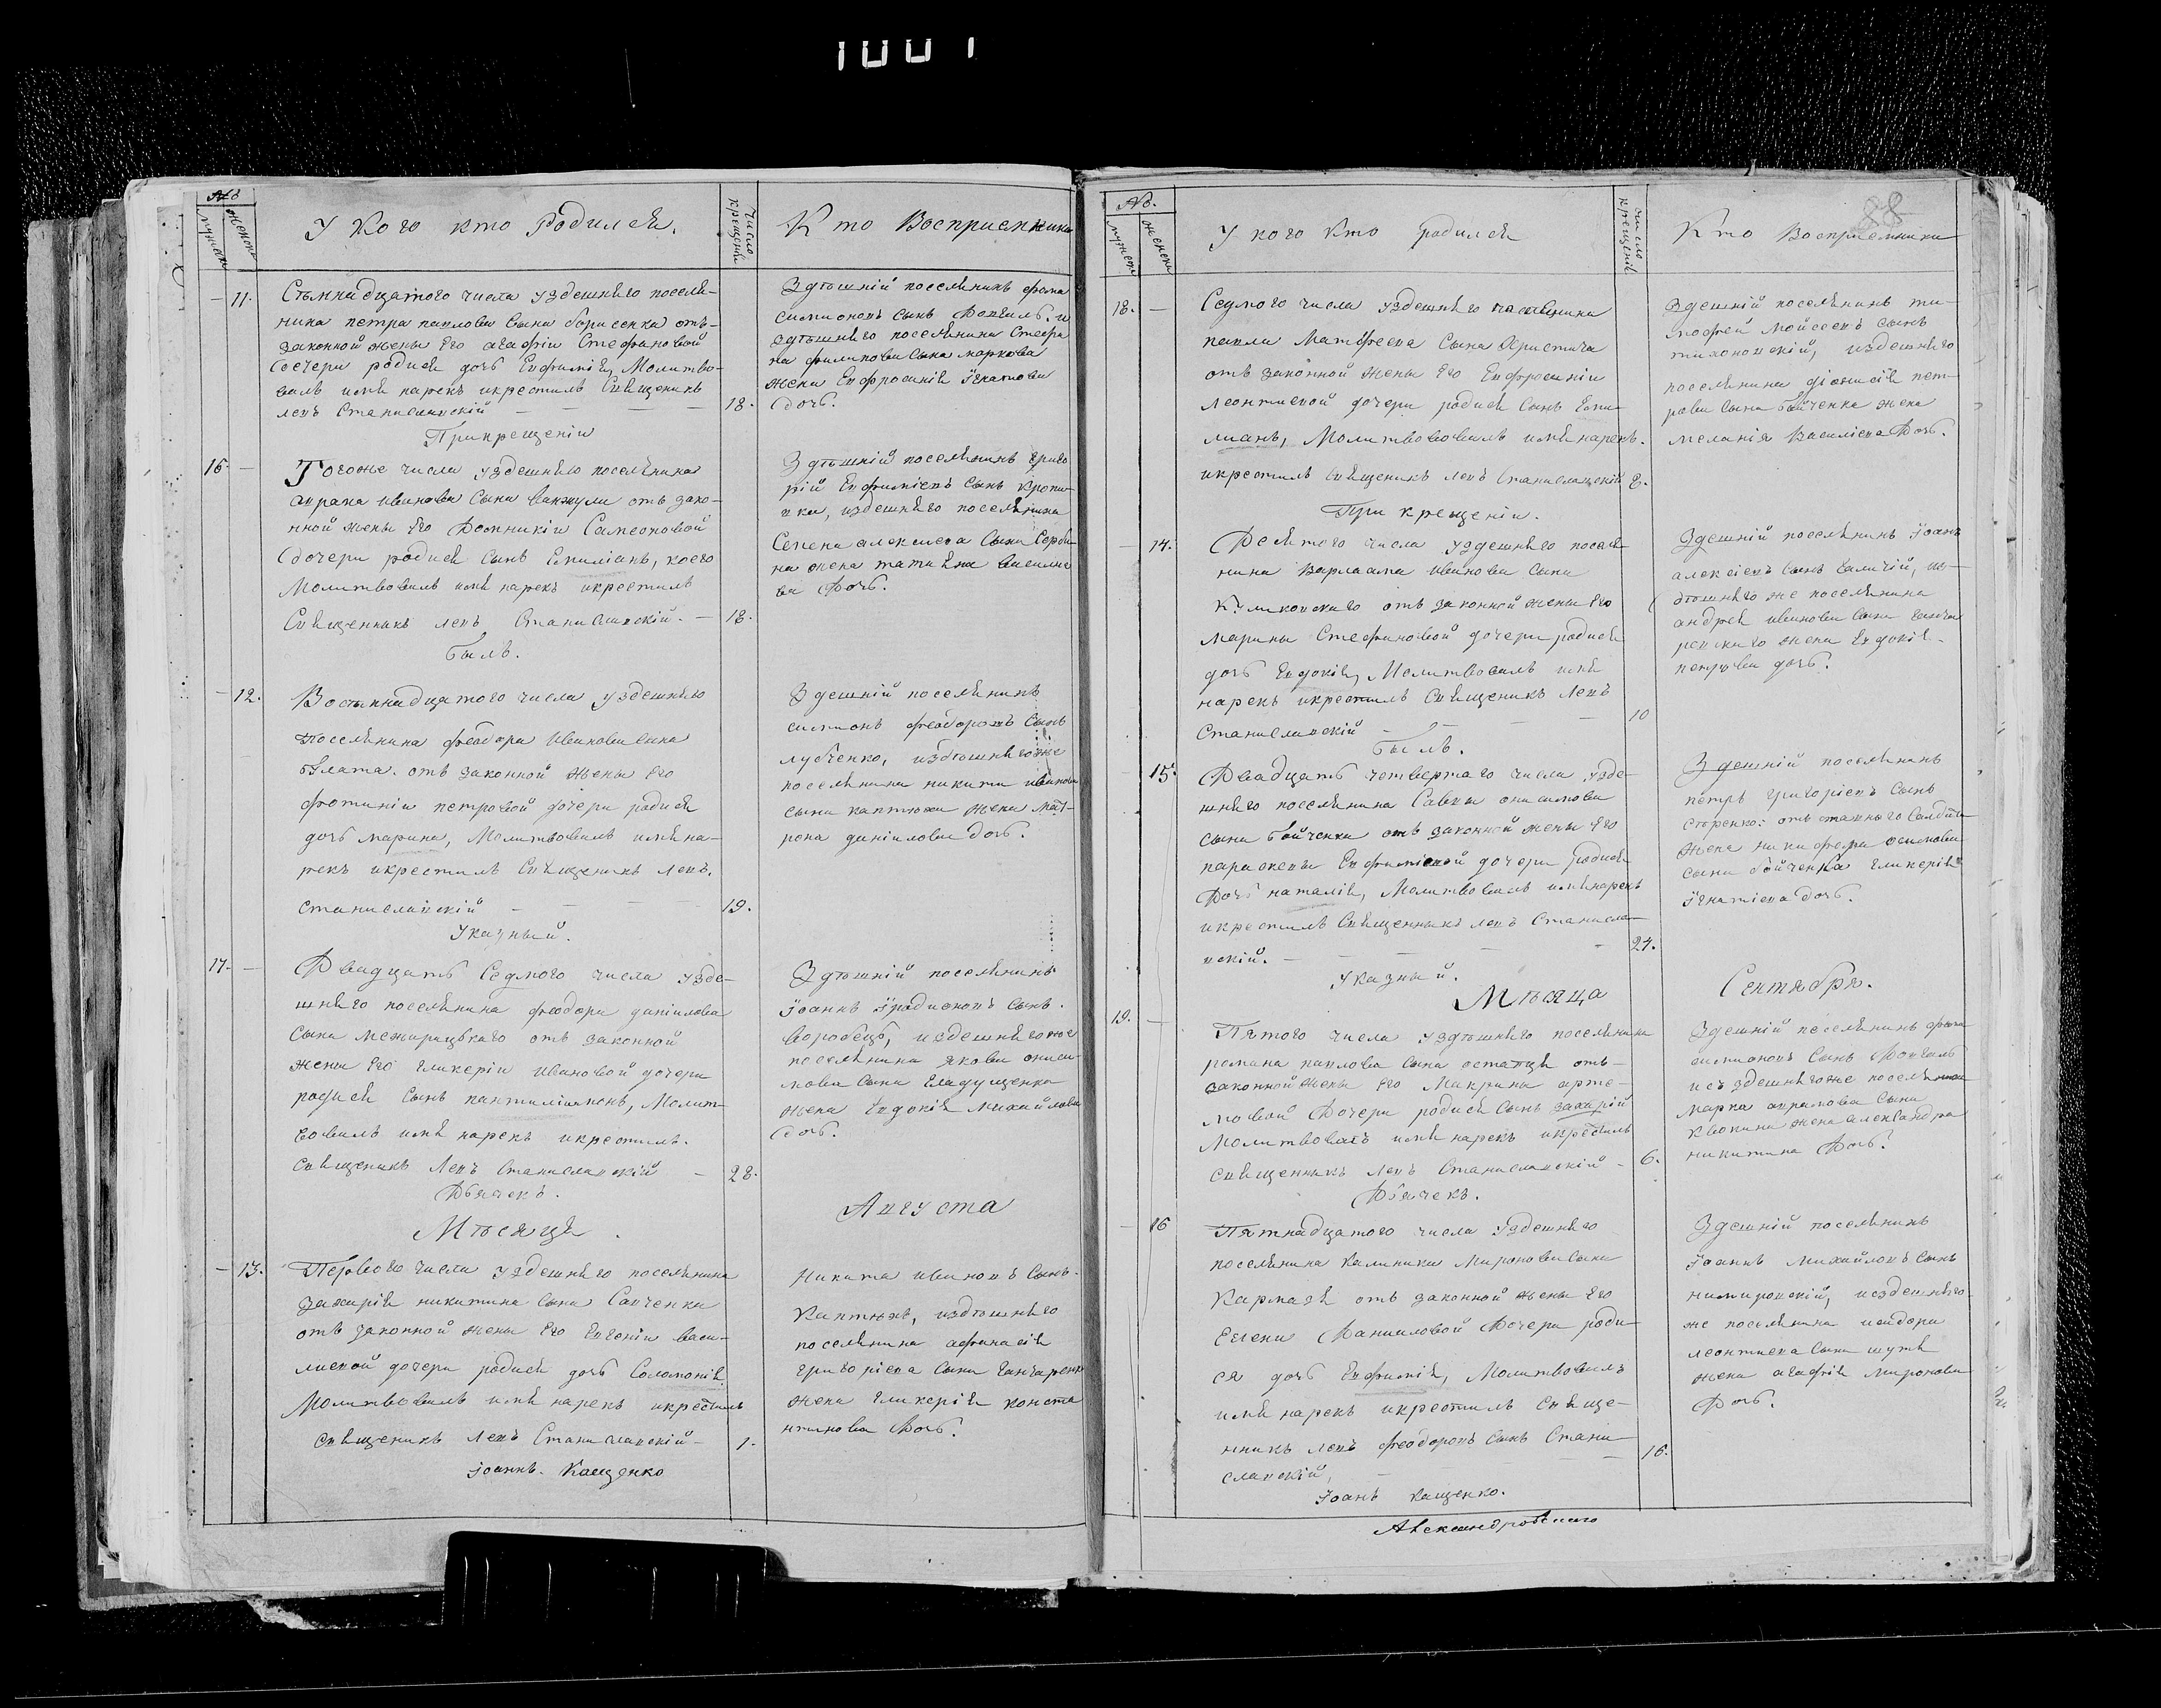 1001
№
мужеск
женск
У Кого кто Родился.
число крещенія
Кто Восприемники
11.
Стьмнадцатого числа уздешнѣго поселя-
нина петра павлова сына борисенка отъ-
законной жены Его агафіи Стефановой
дочери родися дочь Евфимія, Молитво-
валъ имя нарекъ икрестилъ Священикъ
левъ Станиславскій
18.
Прикрещеніи
Здѣшній поселянинъ фома
симионовъ сынъ Довгаль. и
здѣшнѣго поселянина Стефа
на филипова сына маркова
жена Евфросинія Ігнатова
дочь.
16.
Тогоже числа уздешнѣго поселянина
аврама иванова сына ванжули отъ зако-
нной жены Его Домникіи Самсоновой
дочери родися сынъ Емиліанъ, коего
Молитвовалъ имя нарекъ икрестилъ
Священникъ левъ Станиславскій.
18.
Былъ.
Здѣшній поселянинъ григо
рій Евфиміевъ сынъ Кропи-
вка, издешнѣго поселянина
Семена алексиева сына Серди-
на жена татияна василие
ва Дочь.
12.
Востьмнадцатого числа уздешнѣго
поселянина феодора Иванова сына
булата. отъ законной жены Его
фотиніи петровой дочери родися
дочь марина, Молитвовалъ имя на-
рекъ икрестилъ Священикъ левъ.
Станиславскій
19.
Указный.
Здешній поселянинъ
симионъ феодоровъ Сынъ
лубченко, издѣшнѣгоже
поселянина никити иванова
сына каптюжи жена мат-
рона даніилова дочь.
17.
Двадцать Седмого числа узде-
шнѣго поселянина феодора даніилова
сына межирицького отъ законной
жени Его гликеріи ивановой дочери
родися сынъ пантилиимонъ, Молит-
вовалъ имя нарекъ икрестилъ.
священикъ Левъ Станиславскій
28.
Дьячекъ.
Здѣшній поселянинъ
Іоаннъ Іродионовъ сынъ.
воробець, издешнѣгоже
поселянина яковаониси-
мова сына гладущенка
жена Евдокія михайлова
дочь.
Мѣсяця
Августа
13.
Первого числа уздешнѣго поселянина
захарія никитина сына Савченка
отъ законной жены Его Евгеніи васи-
лиевой дочери родися дочь Соломонія
Молитвовалъ имя нарекъ икрестилъ
священикъ левъ Станиславскій
1.
іоаннъ. Кащенко
Никита ивановъ Сынъ.
Каптюхъ, издѣшнѣго
поселянина афанасія
григоріева сына ганчаренк
жена гликерія конста
нтинова дочь.
№.
мужеск
женск
У кого Кто родился
число крещенія
Кто Восприемники
88
18.
Седмого числа уздешнѣго
павла Матфеева Сына Христича
отъ законной жены Его Евфросиніи
леонтиевой дочери родися сынъ Еми-
лианъ, Молитвовалъ имя нарекъ.
икрестилъ священикъ левъ Станиславскій
8.
При крещеніи.
Здешній поселянинъ ти-
мофей мойсеевъ сынъ
тихоновскій, издешнѣго
поселянина діонисія пет-
рова сына бойченка жена
меланія василіева Дочь.
14.
Десятого числа уздешнѣго поселя-
нина Варлаама иванова сына
Куликовского отъ законной жены Его
марины Стефановой дочери родися
дочь Евдокія, Молитвовалъ имя
нарекъ икрестилъ Священикъ левъ
Станиславскій
10
Былъ.
Здешній поселянинъ Іоанъ
алексіевъ сынъ галичій, из-
дѣшнѣго же поселянина
андрея иванова сына ганча
ревского жена Евдокія
петрова дочь.
15.
Двадцать четвертаго числа узде-
шнѣго поселянина Саввы онисимова
сына бойченка отъ законной жены Его
параскевы Евфиміевой дочери родися
Дочь наталія, Молитвовалъ имя нарекъ
икрестилъ Священникъ левъ Станисла-
вскій.
24.
Указный.
Здешній поселянинъ
петръ григоріевъ сынъ
отъставного солдата
жена никифора осипова
сына бойченка гликерія
Ігнатіева дочь.
Мѣсяца
Сентября.
19.
Пятого числа уздѣшнѣго поселянина
романа павлова сына остапця отъ-
законной жены Его Макрины арте-
мовой дочери родися сынъ захарій
Молитвовалъ имя нарекъ икрестилъ
священникъ левъ Станиславскій
6.
Дьячекъ.
Здешній поселянинъ фома
симионовъ сынъ Довгаль
изъ здешнѣгоже поселянина
марка аврамова сына
Квокина жена александра
никитина Дочь.
16
Пятнадцатого числа уздешнѣго
поселянина Калиника Миронова сына
Кармазя отъ законной жены Его
Евгени Данииловой Дочери роди-
ся дочь Евфимія, Молитвовалъ
имя нарекъ икрестилъ Свяще-
нникъ левъ феодоровъ сынъ Стани
славскій,
16.
Іоанъ кащенко.
Здешній поселянинъ
Іоаннъ михайловъ сынъ
нимировскій, издешнѣго
же поселянина исидора
леонтиева сына шутя
жена агафія миронова
Дочь.
Александровского